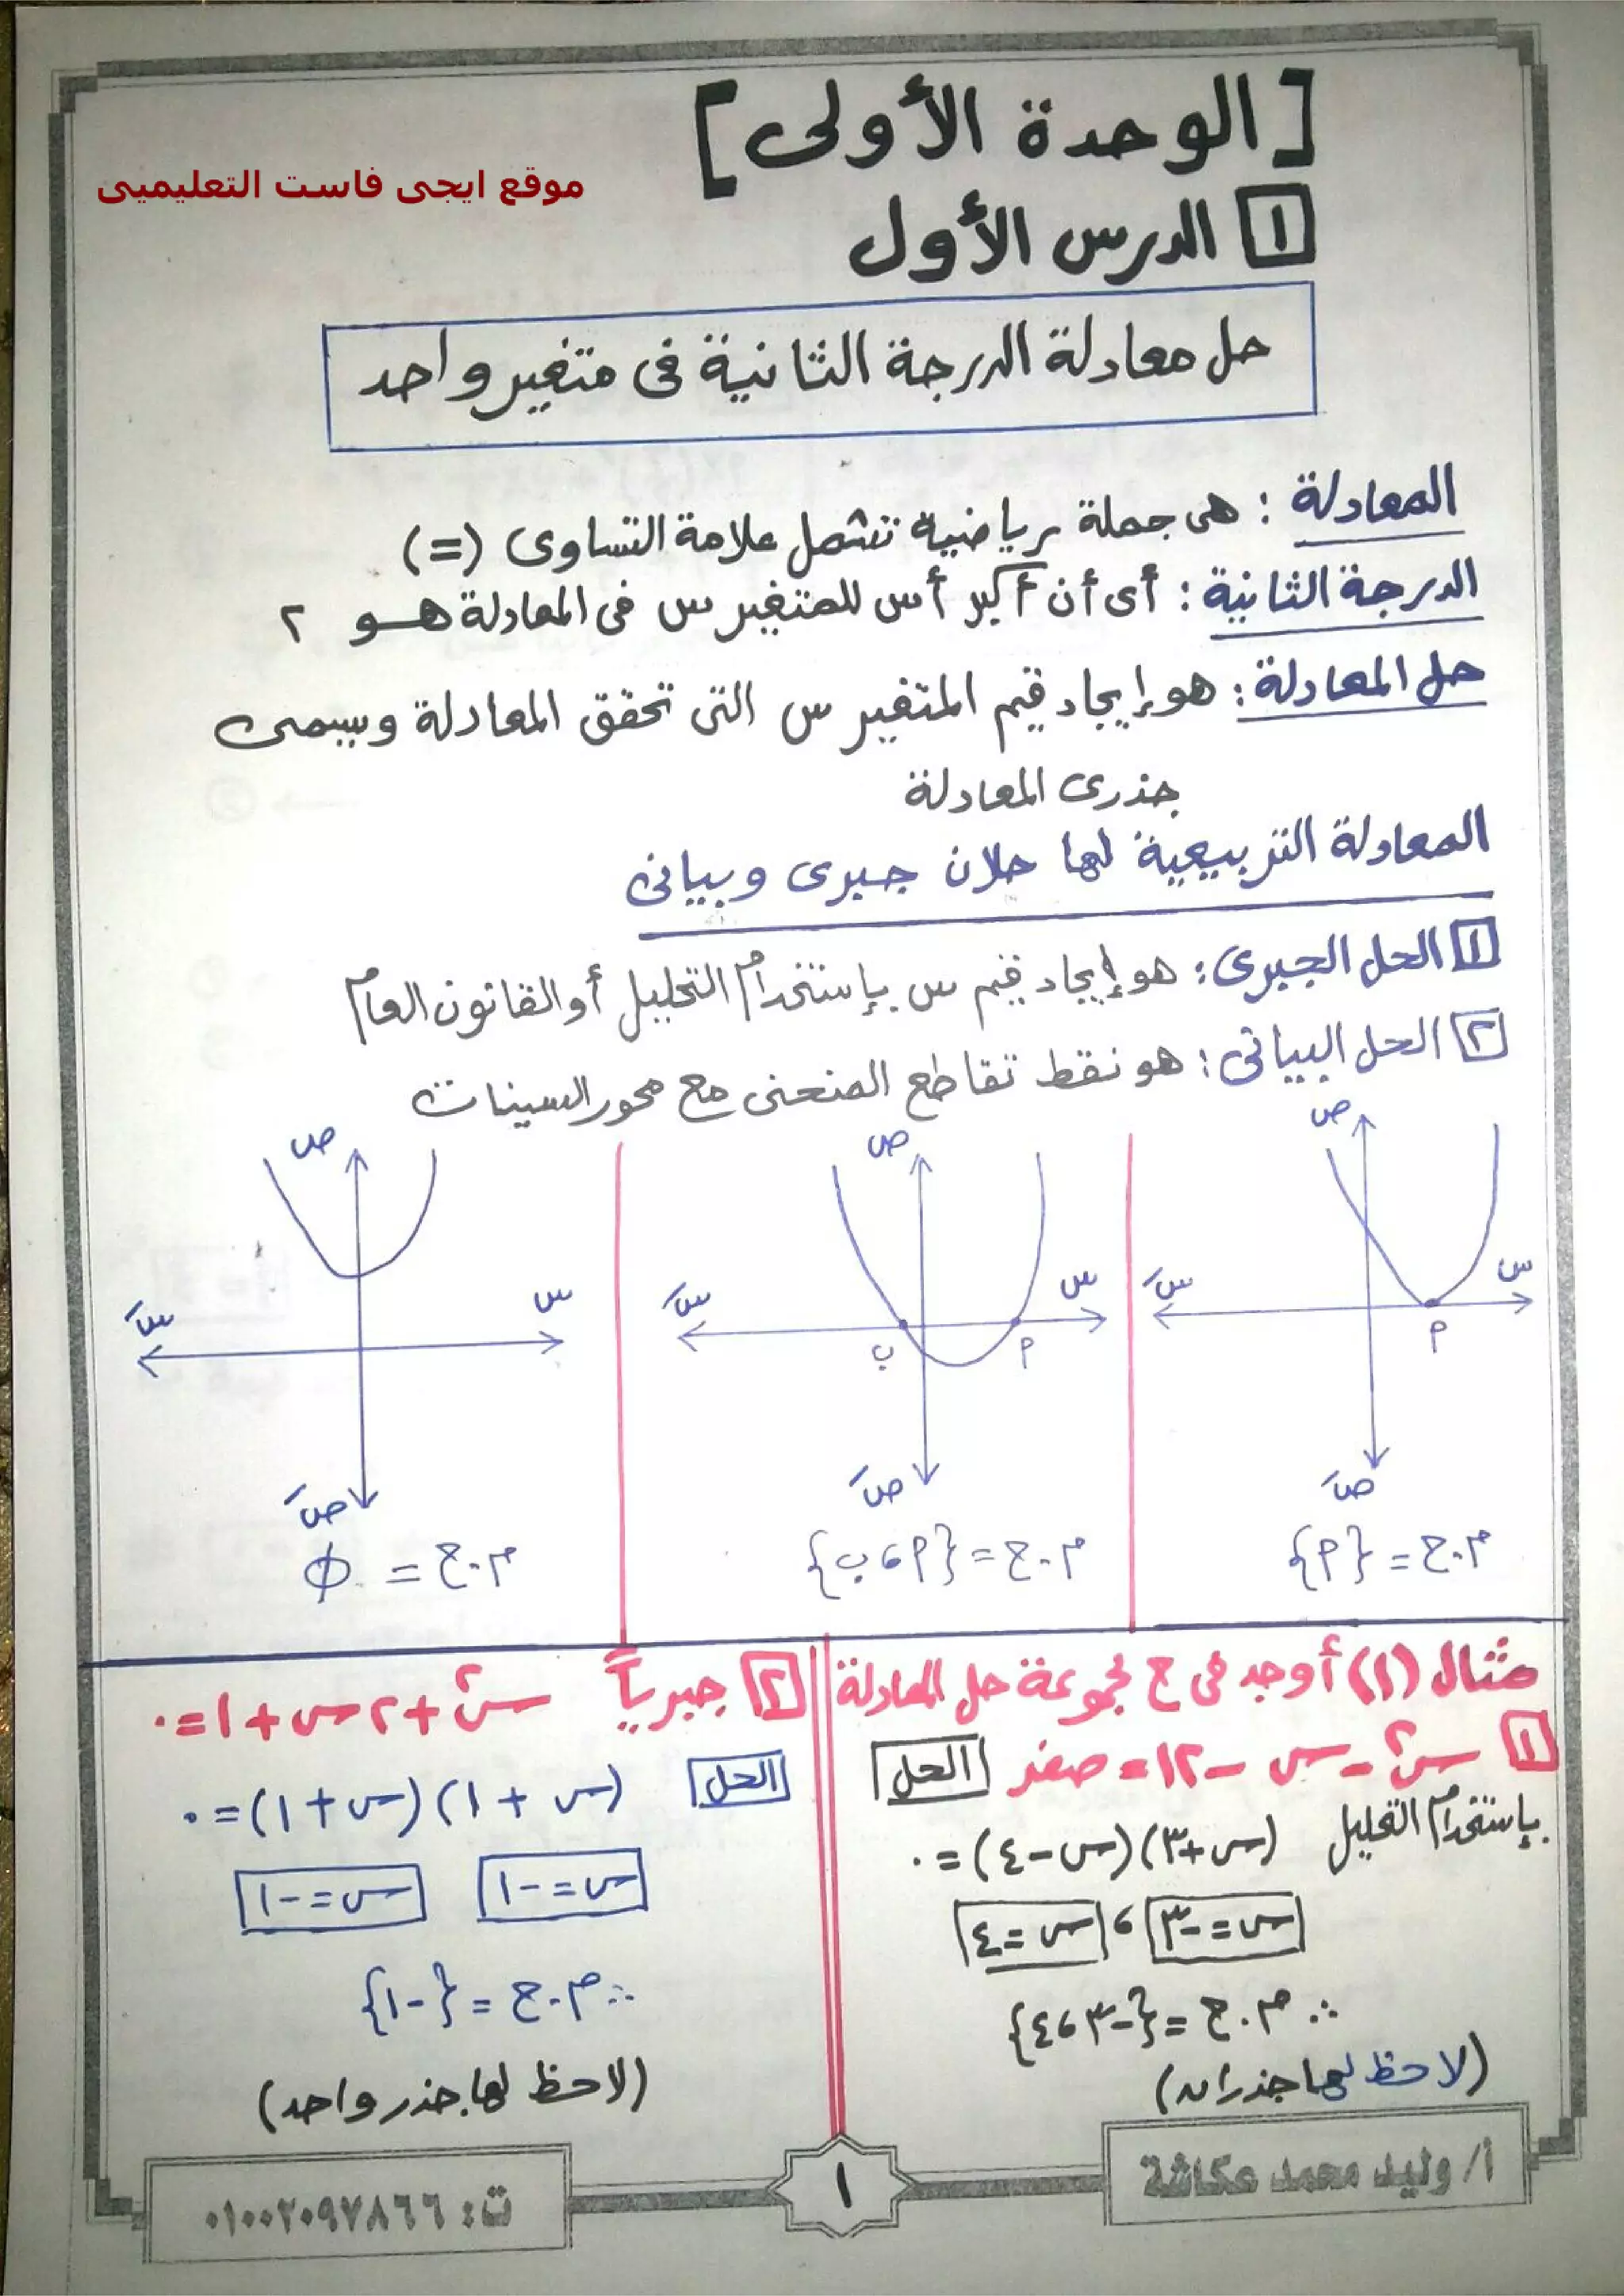 [الوحدة الأولى]
موقع ايجى فاست التعليميى
١ الدرس الأول
حل معادلة الدرجة الثانية فى متغير واحد
المعادلة : هى جملة رياضية تشمل علامة التساوى (=)
الدرجة الثانية : أى أن أكبر أس للمتغير س فى المعادلة هو ٢
حل المعادلة : هو إيجاد قيم المتغير س التى تحقق المعادلة ويسمى
جذرى المعادلة
المعادلة التربيعية لها حلان جبرى وبيانى
١ الحل الجبرى : هو إيجاد قيم س بإستخدام التحليل أو القانون العام
٢ الحل البيانى : هو نقط تقاطع المنحنى مع محور السينات
ص
س
سَ
م
صَ
م.ح = {م}
ص
س
سَ
م
ب
صَ
م.ح = {م ، ب}
ص
س
سَ
صَ
م.ح = φ
مثال (١) أوجد فى ح مجموعة حل المعادلة
١ س٢ - س - ١٢ = صفر
الحل
بإستخدام التحليل (س+٣)(س-٤) = ٠
س = -٣ ، س = ٤
∴ م.ح = {-٣ ، ٤}
(لاحظ لها جذران)
٢ جبرياً س٢ + ٢س + ١ = ٠
الحل
(س + ١)(س + ١) = ٠
س = -١ س = -١
∴ م.ح = {-١}
(لاحظ لها جذر واحد)
أ/ وليد محمد عكاشة
١
ت: ٠١٠٠٢٠٩٧٨٦٦